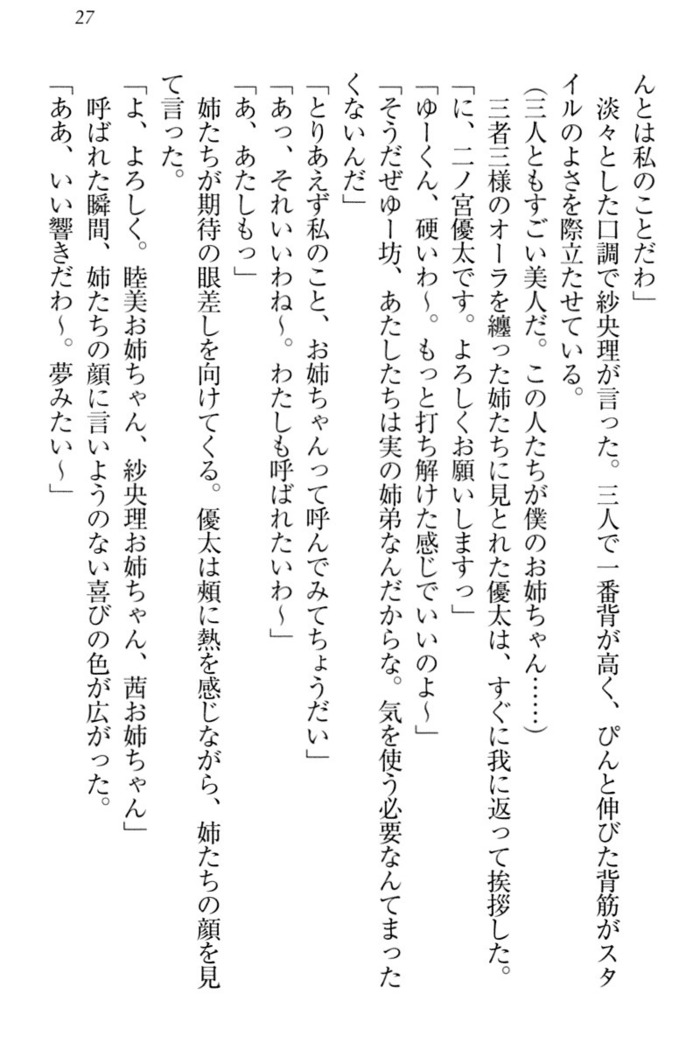 27
んとは私のことだわ」
　淡々とした口調で紗央理が言った。三人で一番背が高く、ぴんと伸びた背筋がスタ
イルのよさを際立たせている。
（三人ともすごい美人だ。この人たちが僕のお姉ちゃん……）
　三者三様のオーラを纏った姉たちに見とれた優太は、すぐに我に返って挨拶した。
「に、二ノ宮優太です。よろしくお願いしますっ」
「ゆーくん、硬いわ〜。もっと打ち解けた感じでいいのよ〜」
「そうだぜゆー坊、あたしたちは実の姉弟なんだからな。気を使う必要なんてまった
くないんだ」
「とりあえず私のこと、お姉ちゃんって呼んでみてちょうだい」
「あっ、それいいわね〜。わたしも呼ばれたいわ〜」
「あ、あたしもっ」
　姉たちが期待の眼差しを向けてくる。優太は頬に熱を感じながら、姉たちの顔を見
て言った。
「よ、よろしく。睦美お姉ちゃん、紗央理お姉ちゃん、茜お姉ちゃん」
　呼ばれた瞬間、姉たちの顔に言いようのない喜びの色が広がった。
「ああ、いい響きだわ〜。夢みたい〜」